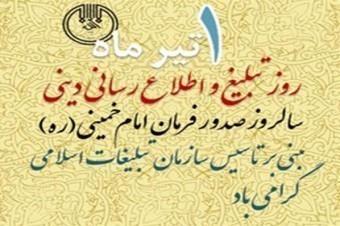 ۱ تیر ماه
روز تبلیغ و اطلاع رسانی دینی
سالروز صدور فرمان امام خمینی (ره)
مبنی بر تاسیس سازمان تبلیغات اسلامی
گرامی باد